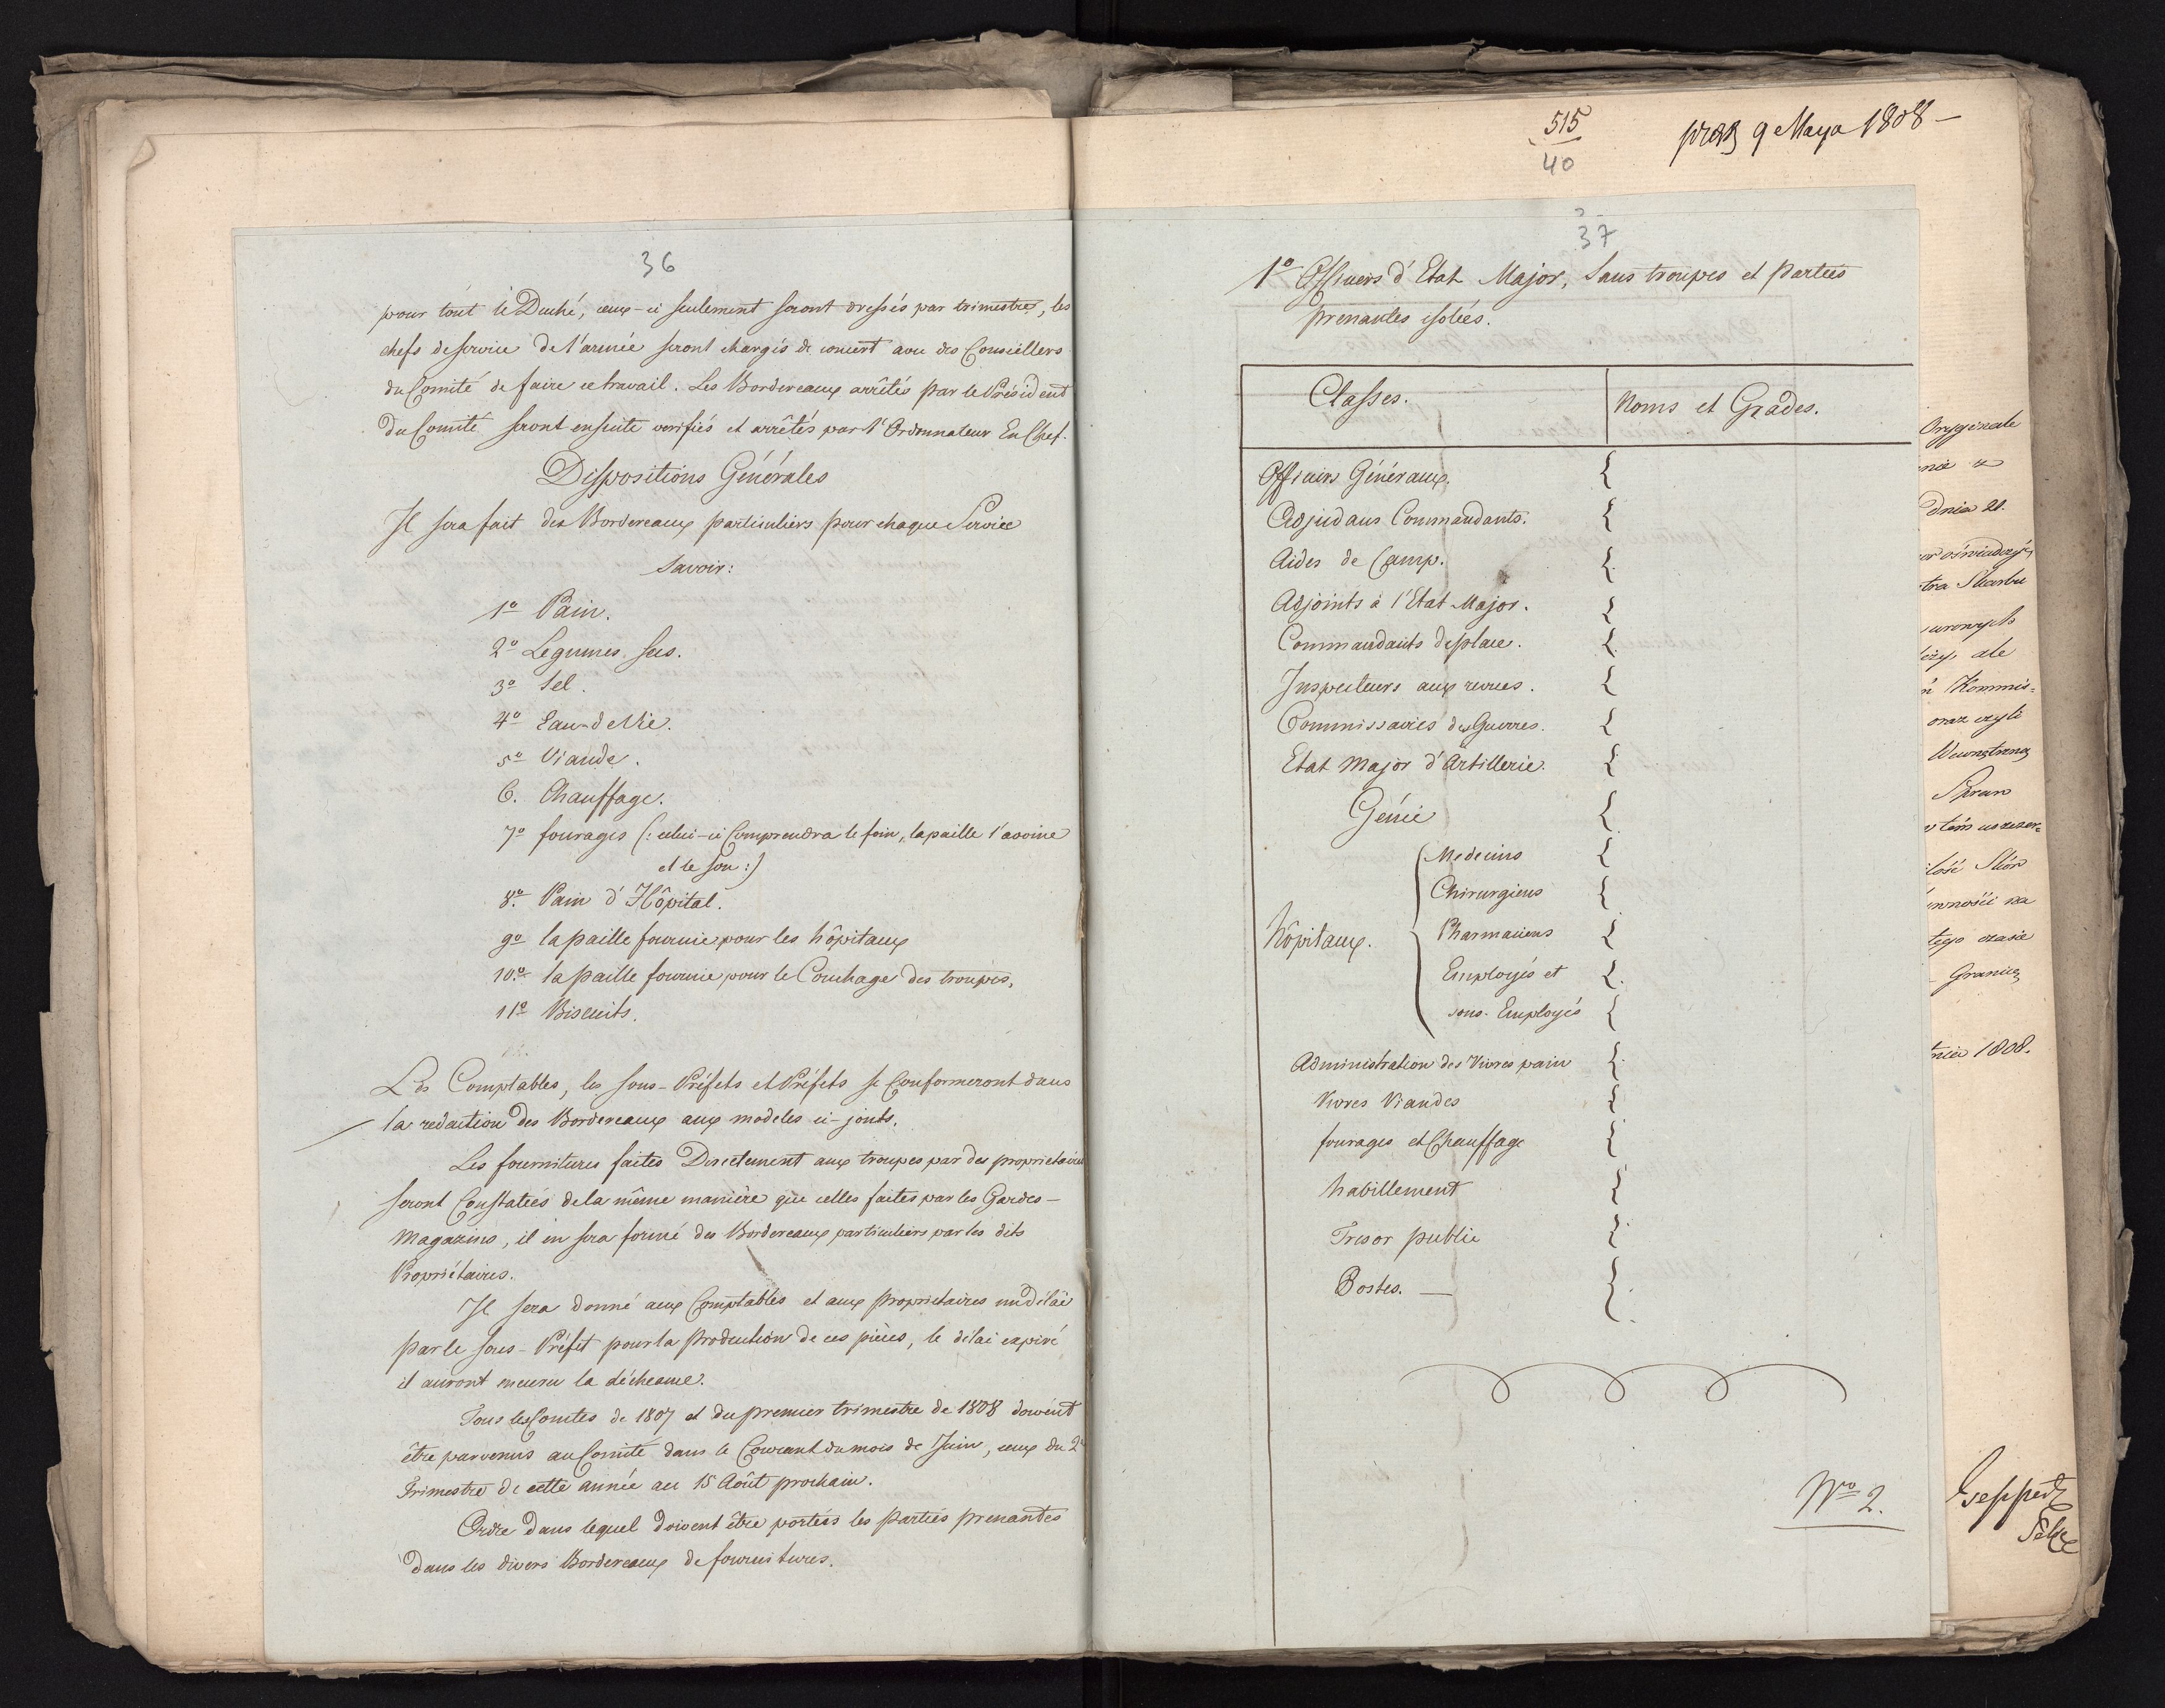 36
pour tout le Duché, ceux-ci seulement seront dressés par trimestres, les
chefs de service de l'armée seront chargés de concert avec des Conseillers
du Comité de faire ce travail. Les Bordereaux arrêtés par le Président
du Comité seront ensuite verifiés et arrêtés par l'Ordonnateur En Chef.
Dispositions Générales
Il sera fait des Bordereaux particuliers pour chaque Service
Savoir:
1º Pain.
2º Legumes secs.
3º Sel.
4º Eau-de Vie.
5º Viande.
6. Chauffage.
7º fourages (: celui-ci Comprendra le foin, la paille l'avoine
et le son :)
8º Pain d'Hôpital.
9º la paille fournie pour les hôpitaux
10º la paille fournie pour le Couchage des troupes.
11º Biscuits.
Les Comptables, les sous-Préfets et Préfets se Conformeront dans
la redaction des Bordereaux aux modeles ci-joints.
Les fournitures faites Directement aux troupes par des proprietaires
seront Constatées de la même manière que celles faites par les Gardes-
Magazins, il en sera formé des Bordereaux particuliers par les dits
Propriétaires.
Il sera donné aux Comptables et aux proprietaires un délai
par le sous-Préfet pour la Production de ces pièces, le délai expiré
il auront encouru la décheance.
Tous les Comtes de 1807 et du premier trimestre de 1808 doivent
être parvenus au Comité dans le Courant du mois de Juin, ceux du 2e
Trimestre de cette année au 15 Août prochain.
Ordre dans lequel doivent être portées les parties prenantes
dans les divers Bordereaux de fournitures.
515
40
praes 9 Maja 1808 -
37
1º Officiers d'Etat Major, Sans troupes et parties
prenantes isolées.
Classes.
Noms et Grades.
Officiers Généraux.
Adjudans Commandants.
Aides de Camp.
Adjoints à l'Etat Major.
Commandants de place.
Inspecteurs aux revues.
Commissaires des Guerres.
Etat Major d'Artillerie.
Génie
hôpitaux.
Medecins
Chirurgiens
Pharmaciens
Employés et
sous-Employés
Administration des Vivres pain
Vivres Viandes
fourages et Chauffage
habillement
Tresor public
Postes.
Nro 2.
Oryginale
dnia 21.
oświadczyć
tra Skarbu
ale
Kommis=
oraz czyli
Wewnętrzną
Spraw
tém
Skór
tego czasie
Granicą
1808.